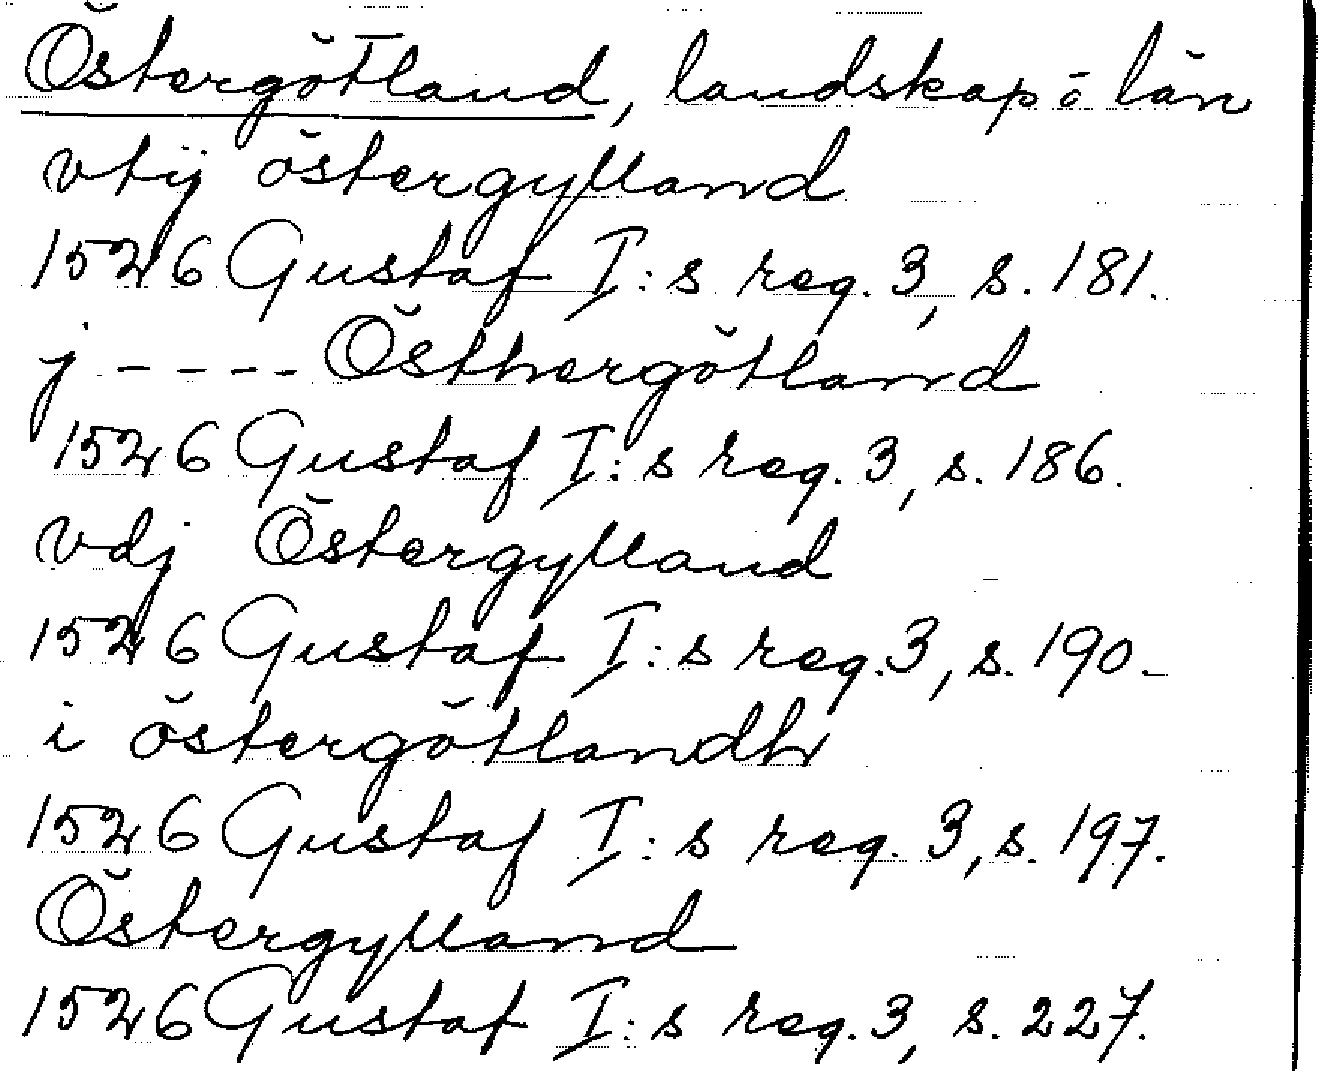 Östergötland, landskap o län
vtij östergylland
1526 Gustaf I:s reg. 3, s. 181.
j ---- Östhergötland
1526 Gustaf I:s reg. 3, s. 186.
vdj Östergylland
1526 Gustaf I:s reg. 3, s. 190.
i östergötlandh
1526 Gustaf I:s reg. 3, s. 197.
Östergylland
1526 Gustaf I:s reg. 3, s. 227.